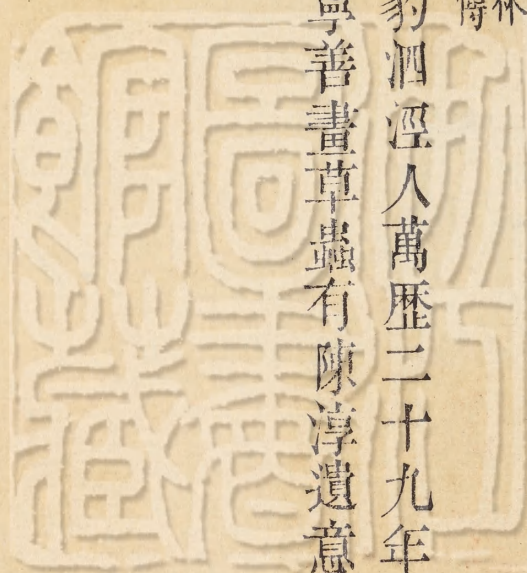 林傳
豹泗涇人萬歷二十九年
寧善畫草蟲有陳淳遺意